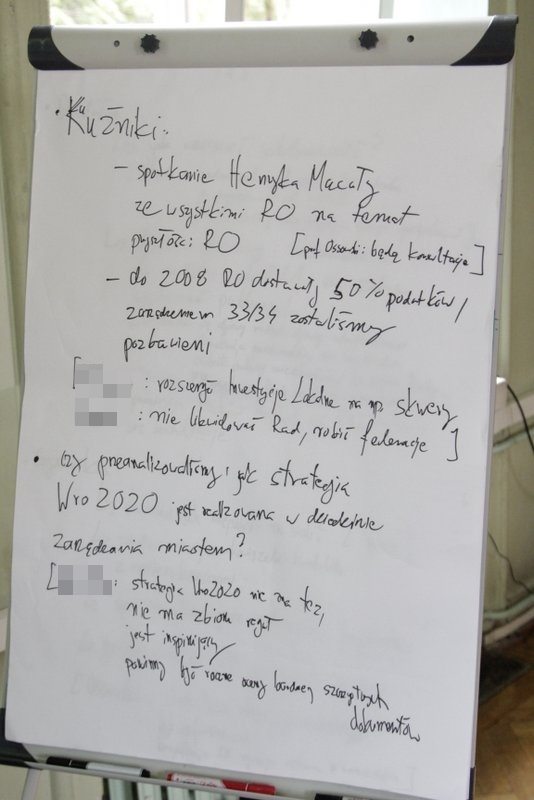 • Kuźniki:
– spotkanie Henryka Macały
ze wszystkimi RO na temat
przyszłość RO [prof. Ossowski: będą konsultacje]
– do 2008 RO dostawały 50% podatków,
zarządzeniem 33/34 zostaliśmy
pozbawieni
[: rozszerzyć Inwestycje Lokalne na np. skwery
: nie likwidować Rad, robić federacje]
• czy przeanalizowaliśmy, jak strategia
Wro 2020 jest realizowana w dziedzinie
zarządzania miastem?
[: strategia Wro2020 nie ma tez,
nie ma zbioru reguł
jest inspirujący
powinny być roczne oceny bardziej
dokumentów